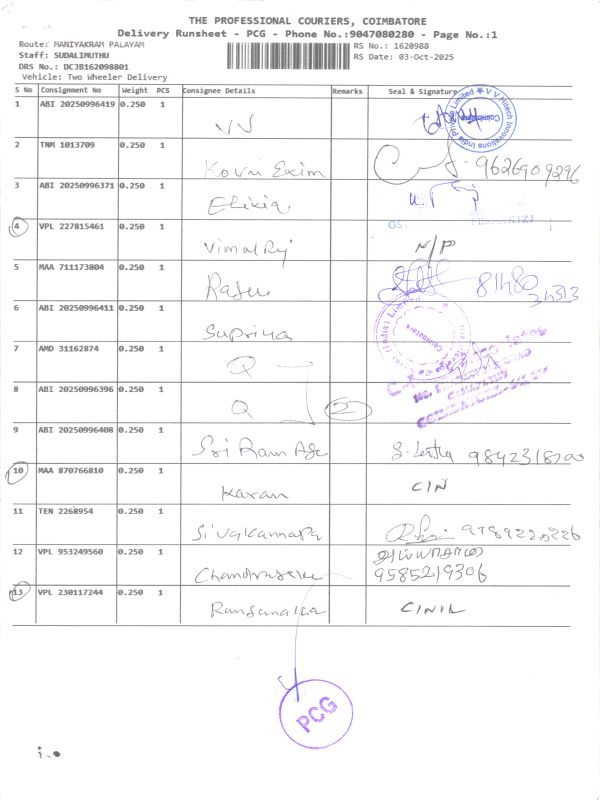 THE PROFESSIONAL COURIERS, COIMBATORE
Delivery Runsheet - PCG - Phone No.:9047080280 - Page No.:1
Route: MANIYAKRAM PALAYAM RS No.: 1620988
Staff: SUDALIMUTHU RS Date: 03-Oct-2025
DRS No.: DCJB162098801
Vehicle: Two Wheeler Delivery
S No Consignment No Weight PCS Consignee Details Remarks Seal & Signature
1 ABI 20250996419 0.250 1 VV
V V Hitech Innovations India Private Limited Coimbatore
2 TNM 1013709 0.250 1 Kovai Exim 9626909296
3 ABI 20250996371 0.250 1
4 VPL 227815461 0.250 1 VimalRj N/P
5 MAA 711173804 0.250 1 Rasu
6 ABI 20250996411 0.250 1 Supriya
7 AMD 31162874 0.250 1 Q
8 ABI 20250996396 0.250 1 Q 2
9 ABI 20250996408 0.250 1 Sri Ram Age
10 MAA 870766810 0.250 1 Karan C/N
11 TEN 2268954 0.250 1
12 VPL 953249560 0.250 1 9585219306
13 VPL 230117244 0.250 1
PCG